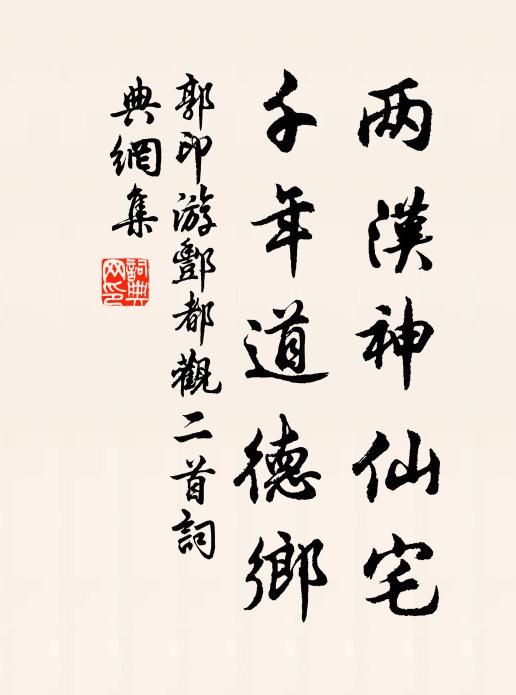 两漢神仙宅
千年道德鄉
郭印游酆都觀二首詞
典網集
詞典
网印